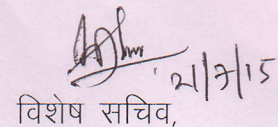 21/7/15
विशेष सचिव,